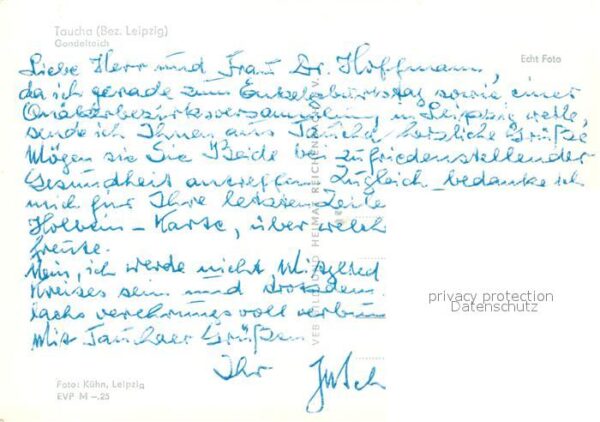 Taucha (Bez. Leipzig)
Gondelteich
Echt Foto
Liebe Herr und Frau Dr. Hoffmann,
da ich gerade zum Enkelsburtstag sowie einer
Quäkerbezirksversammlung in Leipzig weile,
sende ich Ihnen aus Taucha herzliche Grüße
Mögen sie Sie Beide bei zufriedenstellender
Gesundheit antreffen. Zugleich bedanke ich
mich für Ihre letzten Zeile
Holbein-Karte, über welch
freute.
Nein, ich werde nicht Mitglied
Kreises sein und trotzdem
verehrungsvoll verbun
Mit Tauchaer Grüßen
Ihr
VEB BILD UND HEIMAT REICHENBACH I. V.
privacy protection
Datenschutz
Foto: Kühn, Leipzig
EVP M -.25